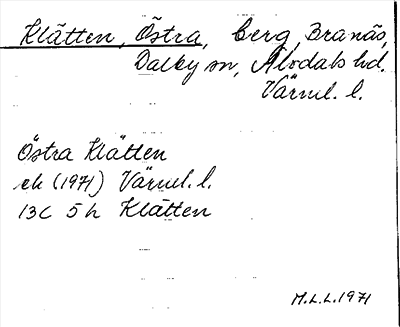 Klätten, Östra, berg, Branäs,
Dalby sn, Älvdals hd.
Värml. l.
Östra Klätten
ek (1971) Värml. l.
13C 5h Klätten
M.L.L. 1971